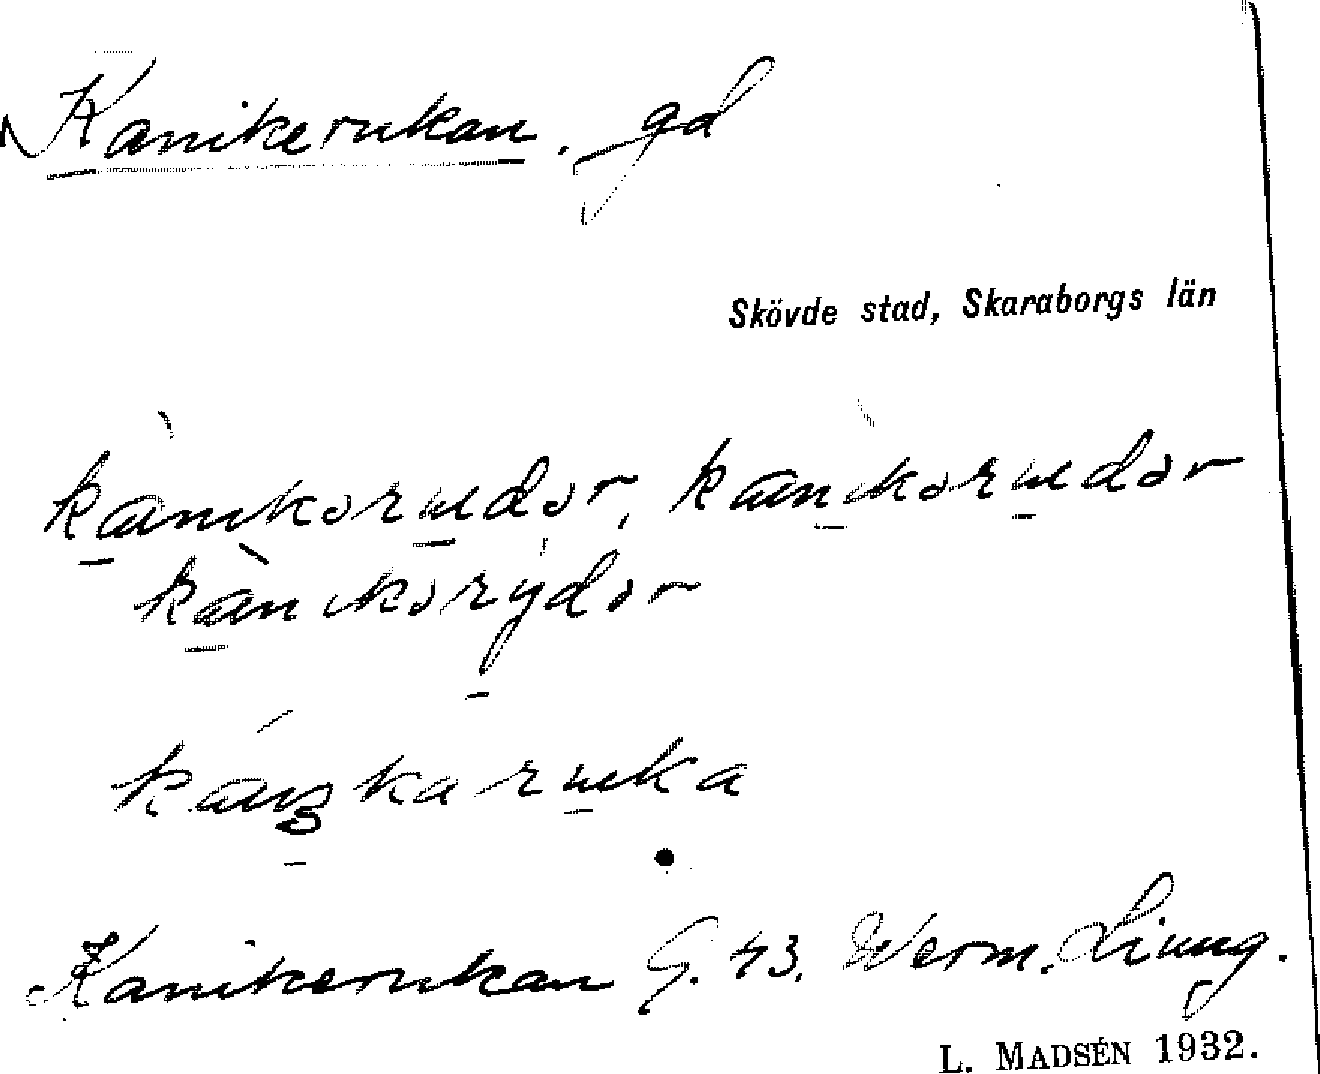 Kanikerukan. gd
Skövde stad, Skaraborgs län
kanikorudor, kanikorudor
kanikorydor
kaŋkaruka
Kanikerukan G. 43. Werm. Liung.
L. MADSÉN 1932.